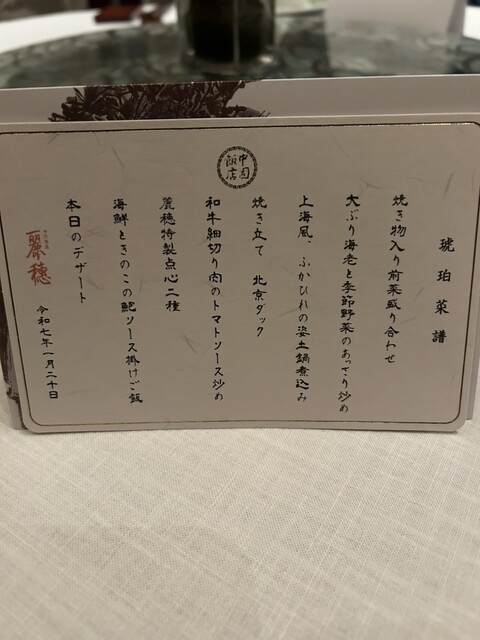 中国飯店
琥珀菜譜
焼き物入り前菜盛り合わせ
大ぶり海老と季節野菜のあっさり炒め
上海風、ふかひれの姿土鍋煮込み
焼き立て 北京ダック
和牛細切り肉のトマトソース炒め
麗穂特製点心二種
海鮮ときのこの鮑ソース掛けご飯
本日のデザート
麗穂
令和七年一月二十日